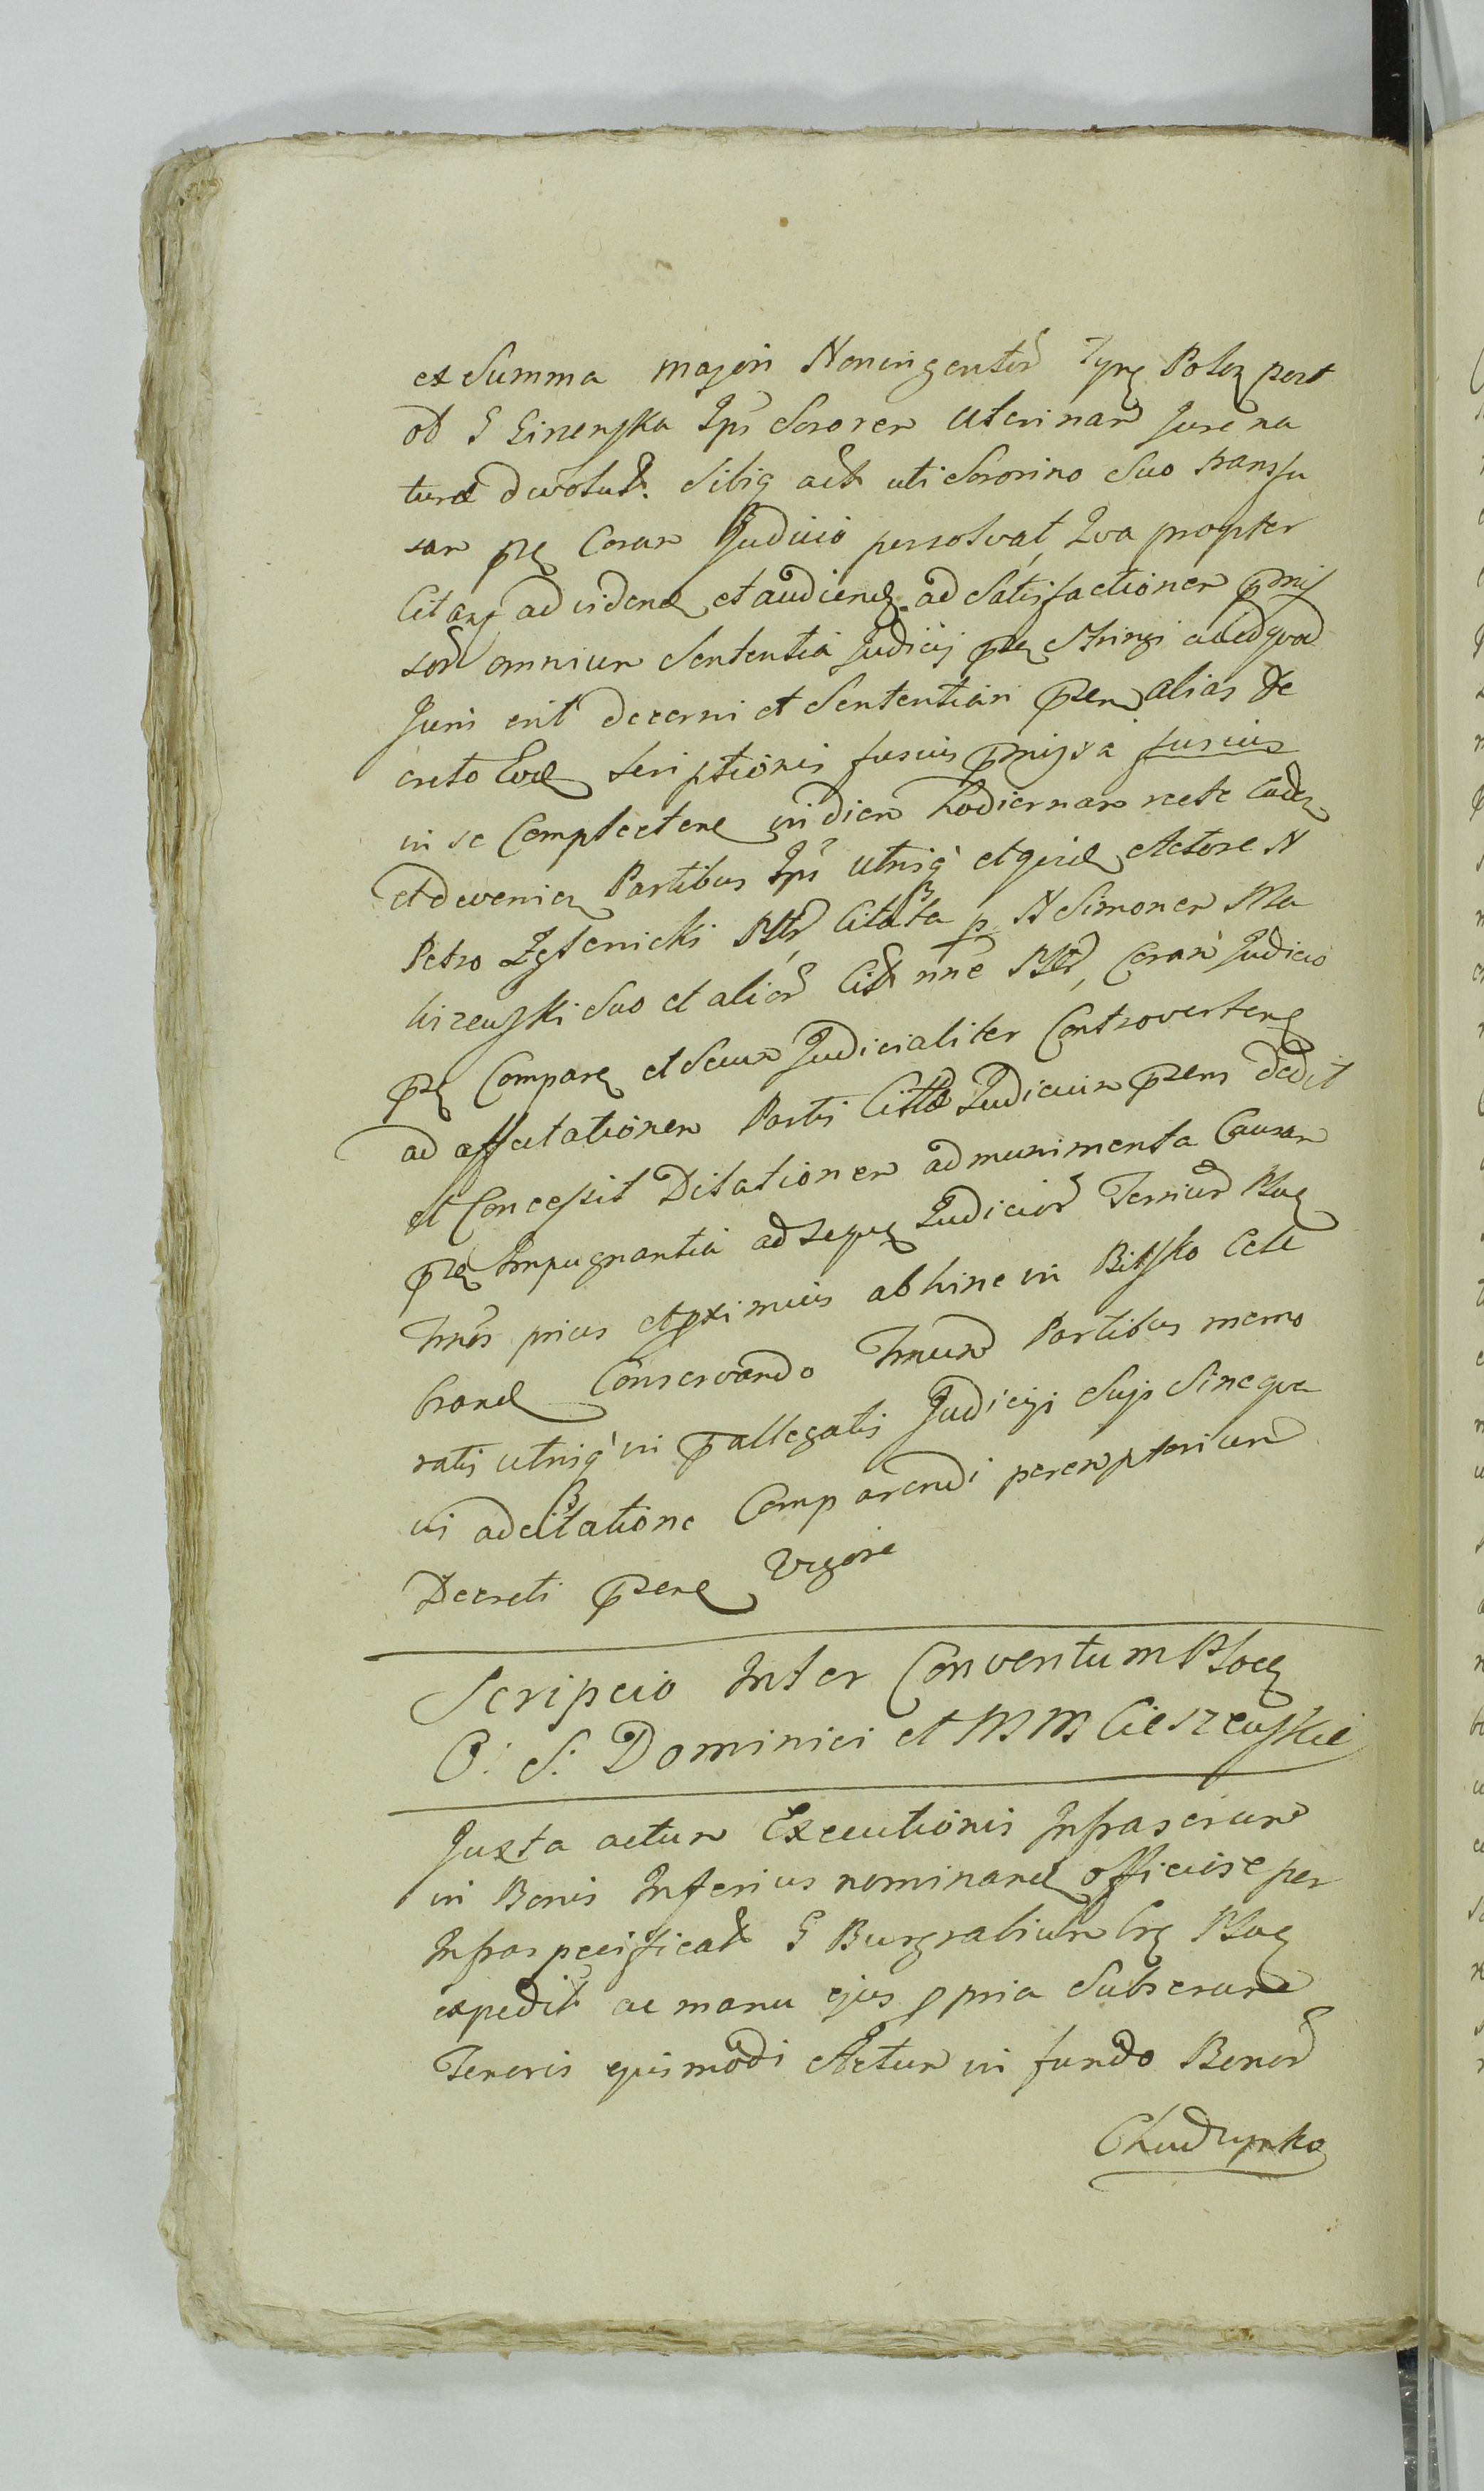 ex Summa majori Noningentor Tynf Polon post
ob G Ginenska Ipi Sororem Uterinam Jure na
turae devolut. Sibiq act uti Sororino Suo transfu
sam pns Coram Judicio persolvat, Qva propter
Citans ad vidend et audiend ad Satisfactionem pmis
sor omnium Sententia Judicij pns Stringi aliidqvod
Juris erit decerni et Sententiari pnsen alias de
creto Evas Scriptionis fusius pmissa fusius
in se Complectens in diem hodiernam recte Caden
et devenien Partibus Ipis utrisq et qvid Actore N
Petro Zglenicki Mtr, Citata p N Simonem Ma
kizewski Suo et alior Cit nne Mtr, Coram Judicio
pns Comparen et Secum Judicialiter Controverten
ad affectationem Partis Cittae Judicium psens dedit
et Concessit Dilationem ad munimenta Causam
pns Impugnantia ad seqvn Judicior Terrium Ploc
Tmis prius et pximius abhinc in Bielsko Cele
brand Conservando Tmum Partibus memo
ratis utrisq in pallegatis Judicijs Sujs Sine qva
vi adcitatione Comparendi peremptorium
Decreti psens Vigore
Scripcio Inter Conventum Plocen
O: S: Dominici et MM Cieszewskie
Juxta actum Executionis Infrascrum
in Bonis Inferius nominand officiose per
Infraspecificat G Burgrabium Crn Ploc
expedit ac manu ejus ppria Subscrum
Tenoris ejusmodi Actum in fundo Bonor
Chudzynko